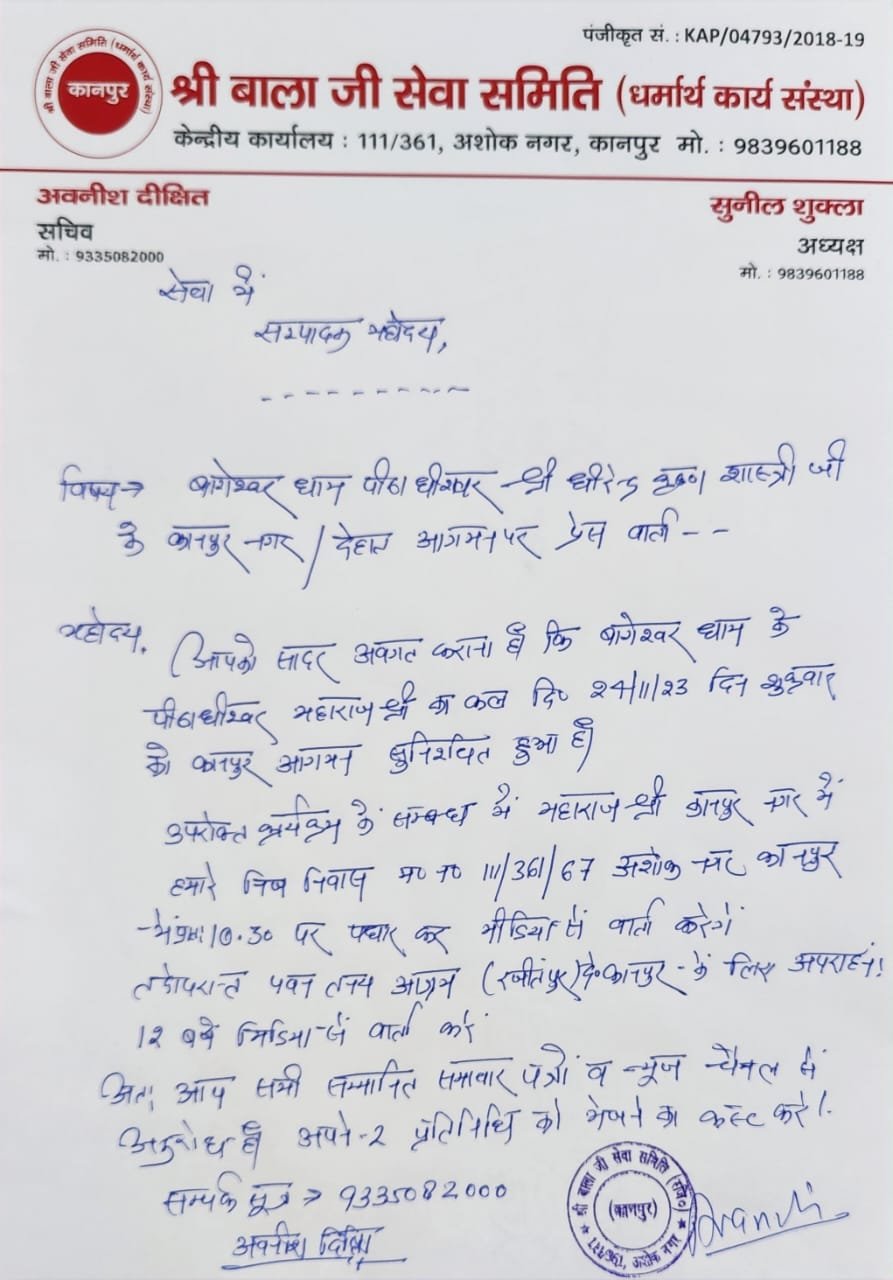 पंजीकृत सं. : KAP/04793/2018-19
श्री बाला जी सेवा समिति (धर्मार्थ कार्य संस्था)
कानपुर
श्री बाला जी सेवा समिति (धर्मार्थ कार्य संस्था)
केन्द्रीय कार्यालय : 111/361, अशोक नगर, कानपुर मो. : 9839601188
अवनीश दीक्षित
सचिव
मो. : 9335082000
सुनील शुक्ला
अध्यक्ष
मो. : 9839601188
सेवा में
सम्पादक महोदय,
----------
विषय→ बागेश्वर धाम पीठाधीश्वर श्री धीरेन्द्र कृष्ण शास्त्री जी
के कानपुर नगर / देहात आगमन पर प्रेस वार्ता --
महोदय,
आपको सादर अवगत कराना है कि बागेश्वर धाम के
पीठाधीश्वर महाराज श्री का कल दि० 24/11/23 दिन शुक्रवार
को कानपुर आगमन सुनिश्चित हुआ है।
उपरोक्त कार्यक्रम के सम्बन्ध में महाराज श्री कानपुर नगर में
हमारे निज निवास म० न० 111/361/67 अशोक नगर कानपुर
में 10.30 पर पधार कर मीडिया से वार्ता करेगें
तदोपरान्त पवन तनय आश्रम दे० कानपुर के लिए अपराहन!
12 बजे मिडिया से वार्ता करें
अतः आप सभी सम्मानित समाचार पत्रों व न्यूज चैनल से
अनुरोध है अपने-2 प्रतिनिधि को भेजने का कस्ट करे।
सम्पर्क सूत्र → 9335082000
अवनीश दिक्षित
श्री बाला जी सेवा समिति (रजि०)
(कानपुर)
111/361, अशोक नगर